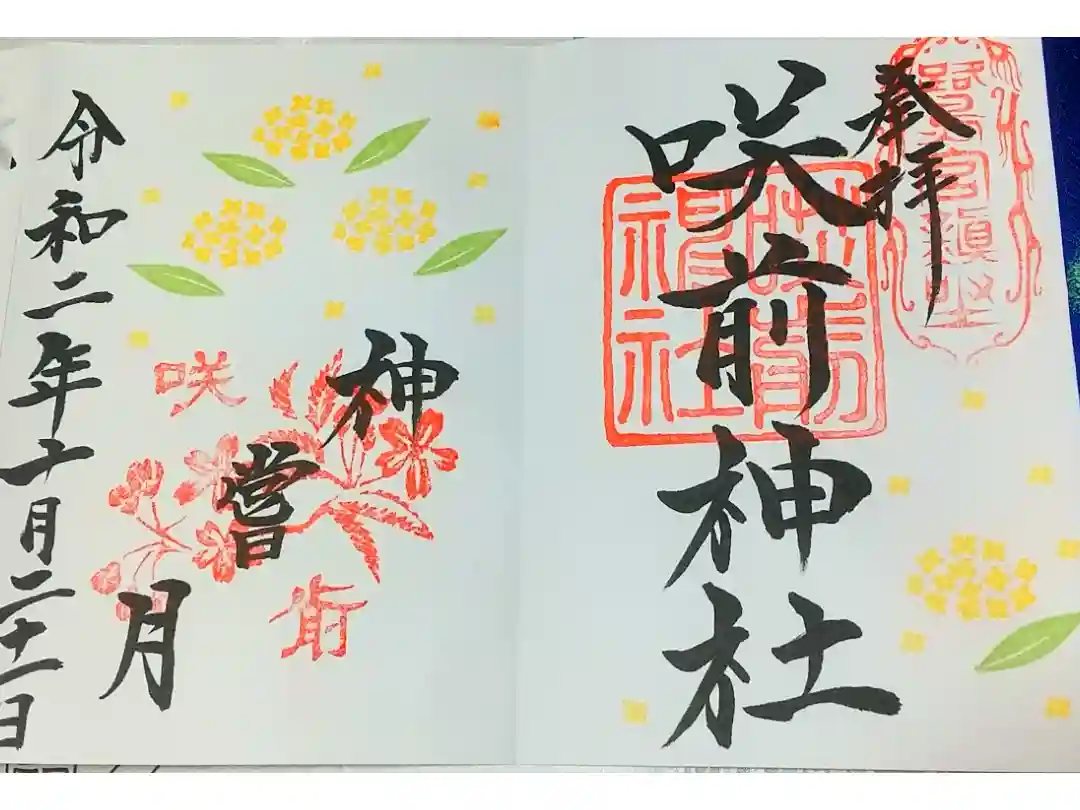 奉拝
鷺宮鎮坐
咲前神社
咲前神社
神嘗月
咲前
令和二年十月二十一日